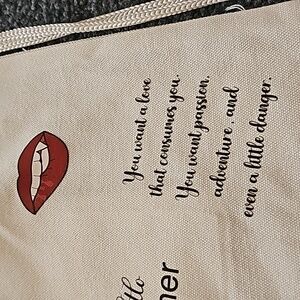 You want a love
that consumes you.
You want passion,
adventure, and
even a little danger.